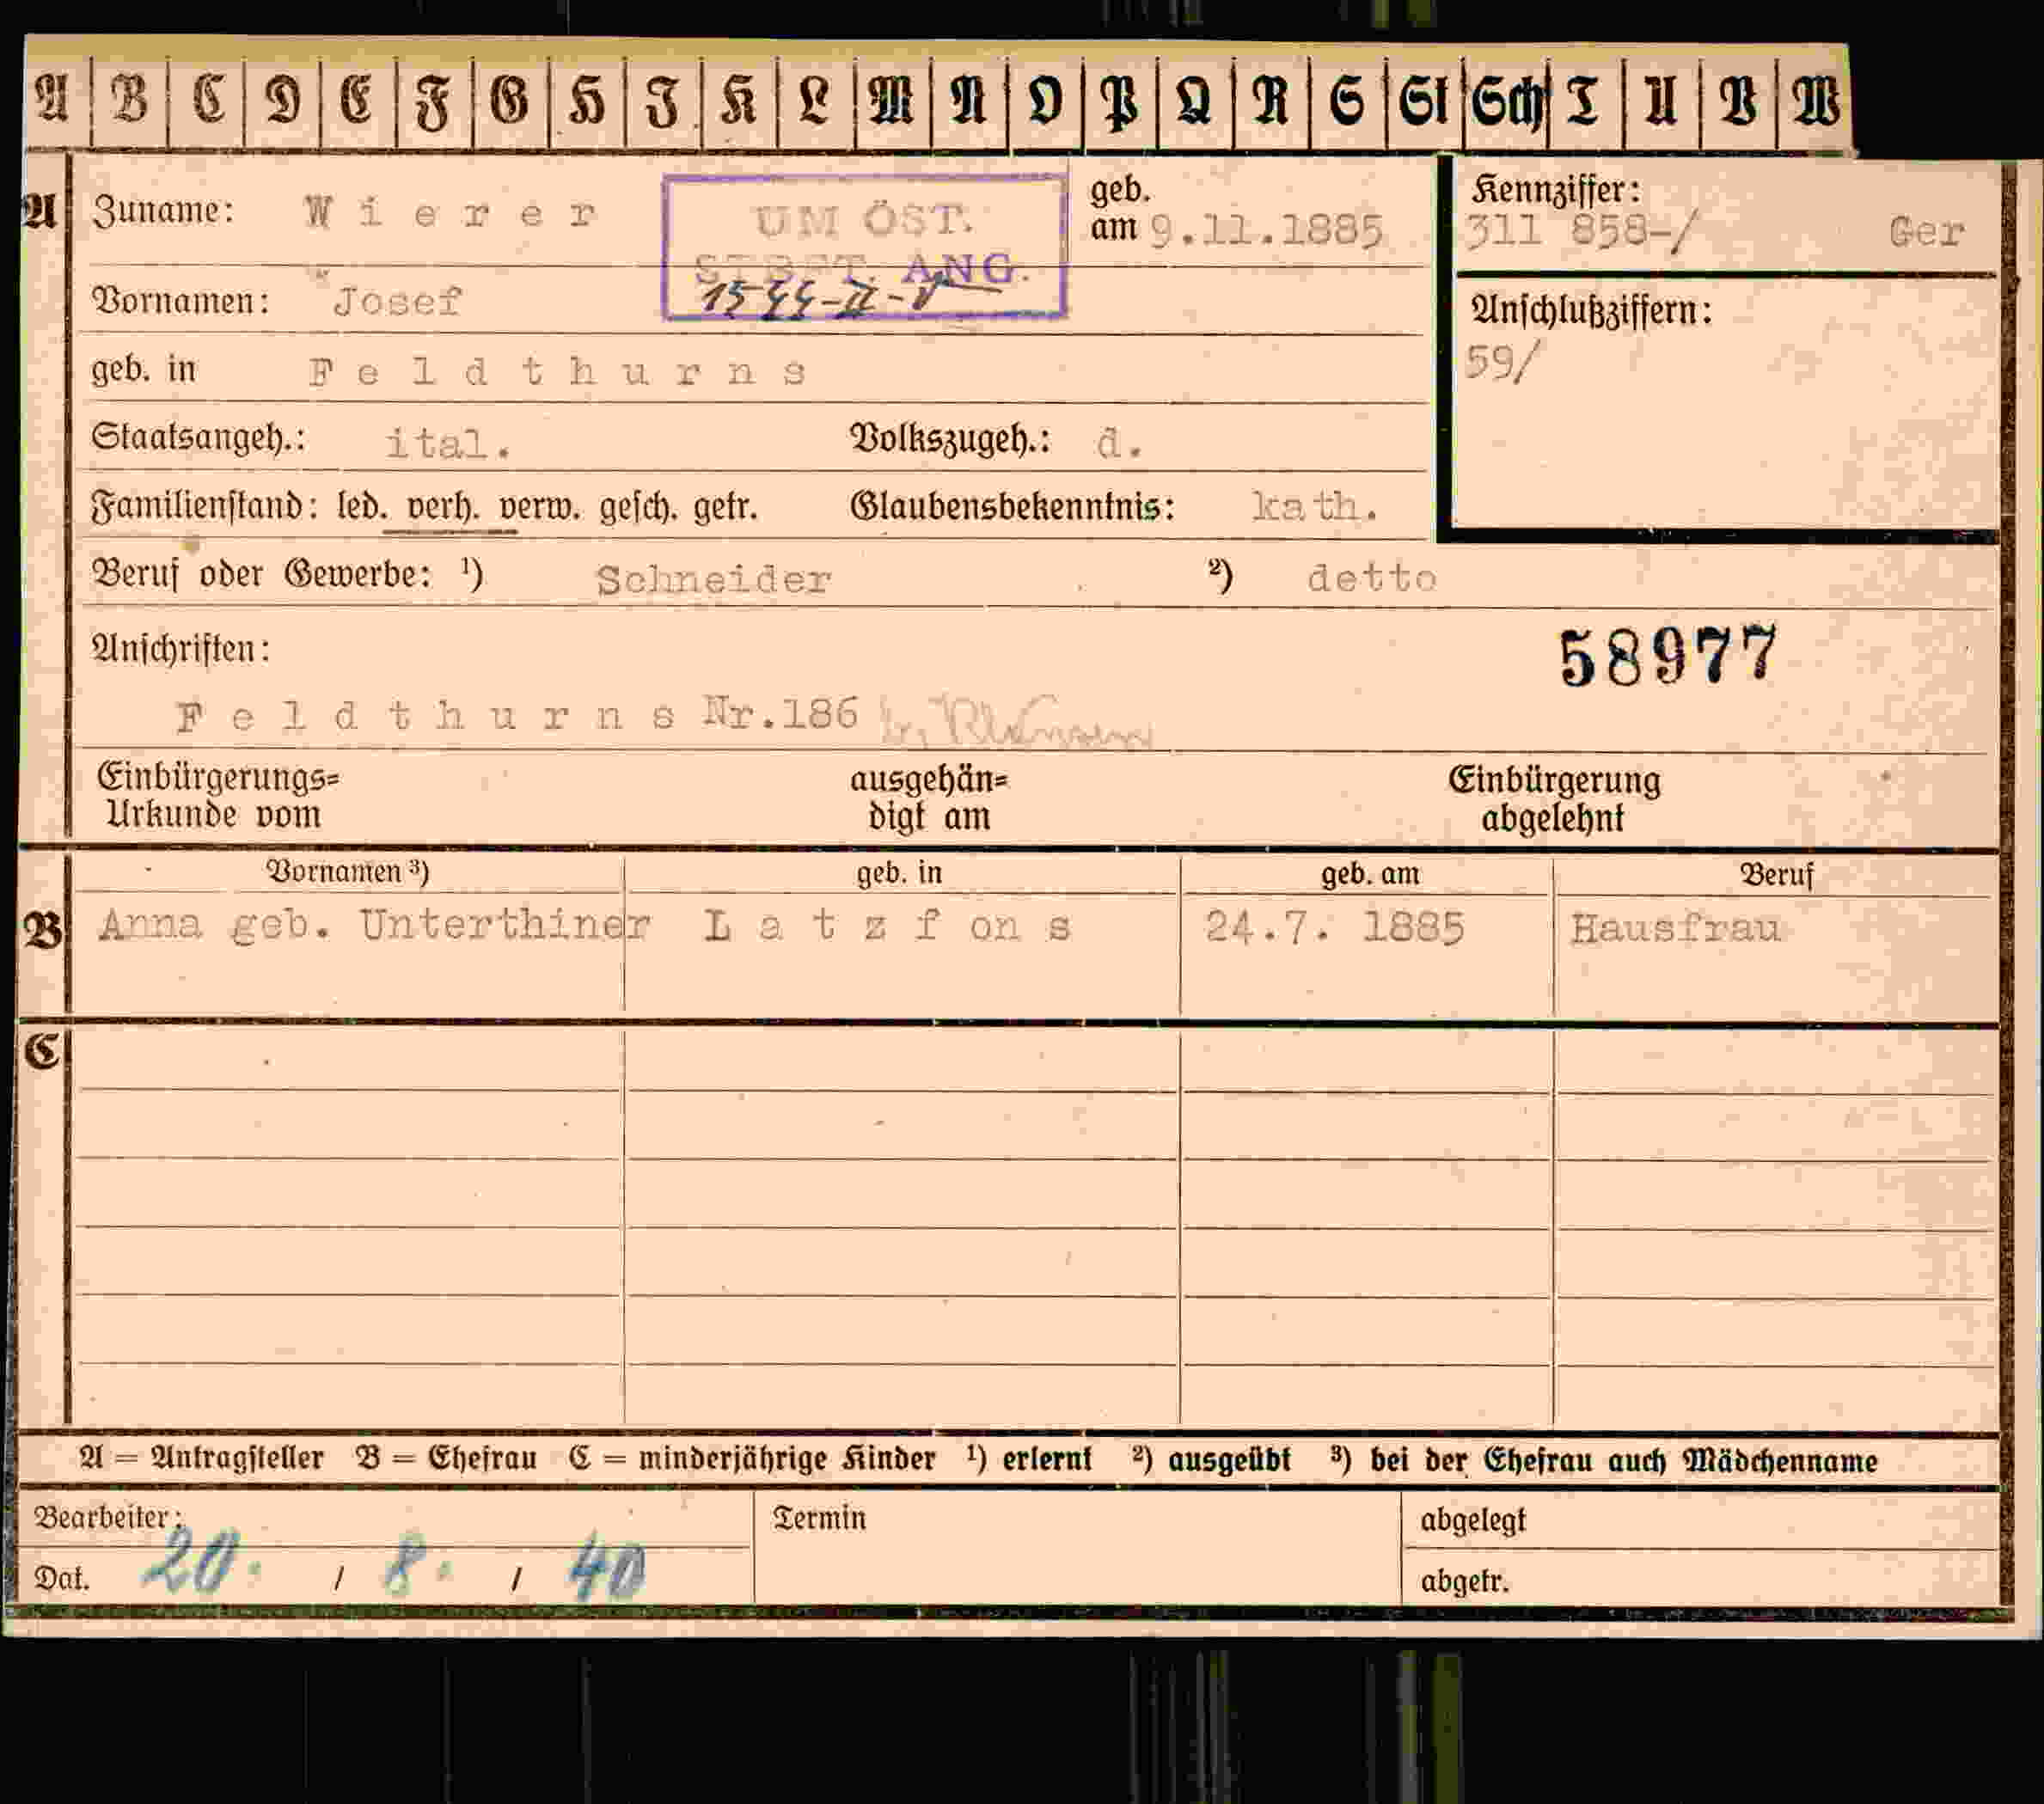 A B C D E F G H J K L M N O P Q R S St Sch T U V W
A Zuname: Wierer UM ÖST. STBFT. ANG. geb. am 9.11.1885 Kennziffer: 311 858-/ Ger
Vornamen: Josef
Anschlußziffern: 59/
geb. in Feldthurns
Staatsangeh.: ital. Volkszugeh.: d.
Familienstand: led. verh. verw. gesch. getr. Glaubensbekenntnis: kath.
Beruf oder Gewerbe: 1) Schneider 2) detto
Anschriften: 58977
Feldthurns Nr.186
Einbürgerungs= ausgehän= Einbürgerung
Urkunde vom digt am abgelehnt
Vornamen 3) geb. in geb. am Beruf
B Anna geb. Unterthiner Latzfons 24.7. 1885 Hausfrau
C
A = Antragsteller B = Ehefrau C = minderjährige Kinder 1) erlernt 2) ausgeübt 3) bei der Ehefrau auch Mädchenname
Bearbeiter: Termin abgelegt
Dat. 20. / 8. / 40 abgetr.